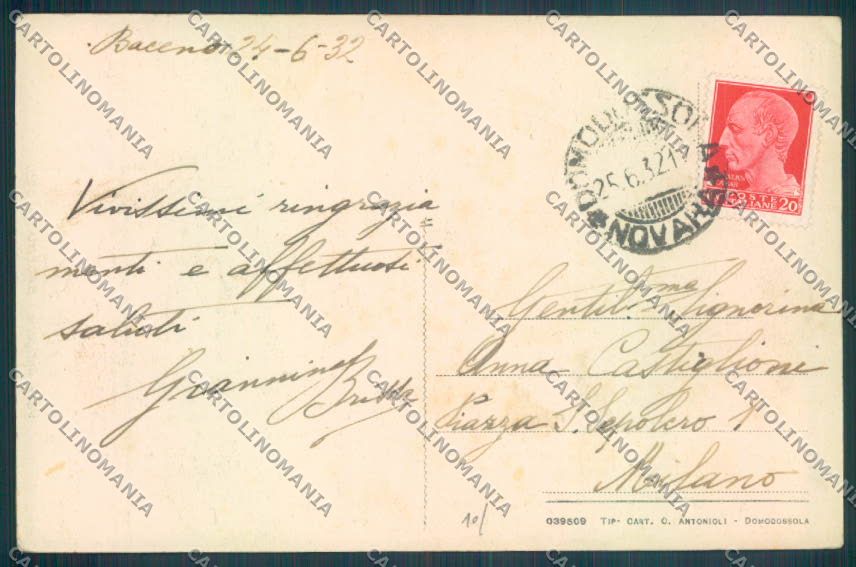 Baceno 24-6-32
Vivissimi ringrazia
menti e affettuosi
saluti
Giannina
DOMODOSSOLA
25.6.32
NOVARA
POSTE
ITALIANE 20
Gentil.ma Signorina
Anna Castiglioni
Piazza S. Sepolcro 1
Milano
10/
039509 TIP. CART. C. ANTONIOLI - DOMODOSSOLA
CARTOLINOMANIA